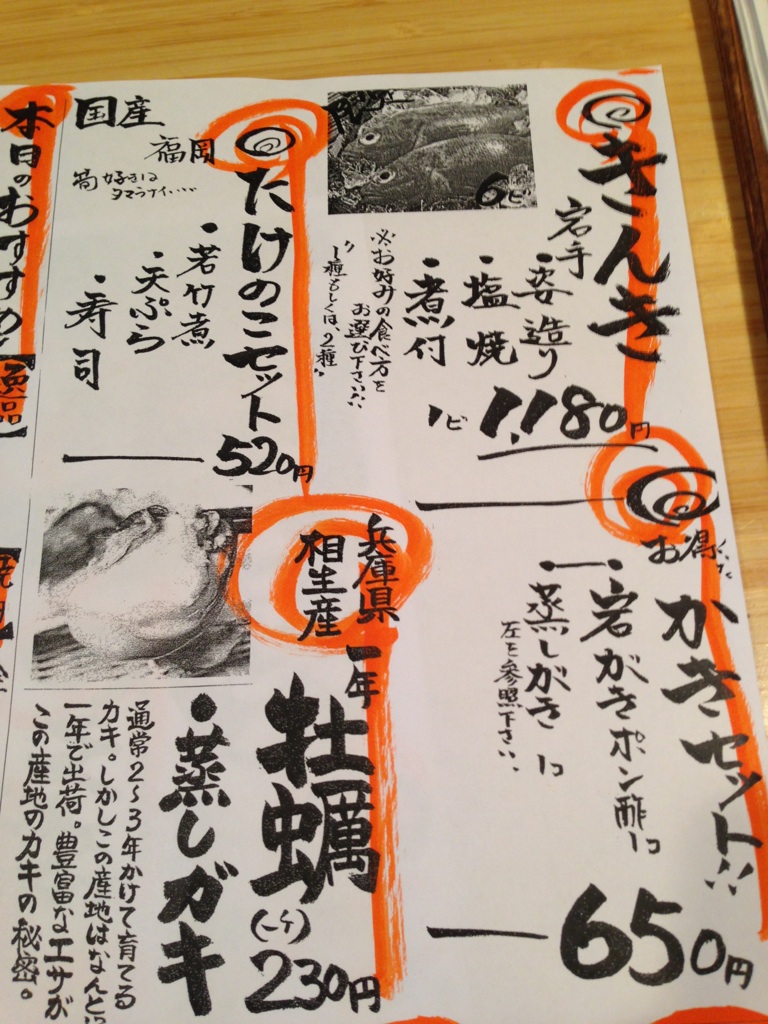 きんき
岩手
・姿造り
・塩焼
・煮付
1ピ 1,180円
※お好みの食べ方を
お選び下さい!!
"1種もしくは、2種"
6ピ
たけのこセット
国産
福岡
筍好きは
タマラナイ…
・若竹煮
・天ぷら
・寿司
520円
本日のおすすめ!
逸品
お得な
かきセット!!
・岩がきポン酢1コ
・蒸しがき 1コ
左を参照下さい、
650円
兵庫県
相生産
一年
牡蠣
(一ケ)
230円
・蒸しガキ
通常2〜3年かけて育てる
カキ。しかしこの産地はなんと!?
一年で出荷。豊富なエサが
この産地のカキの秘密。